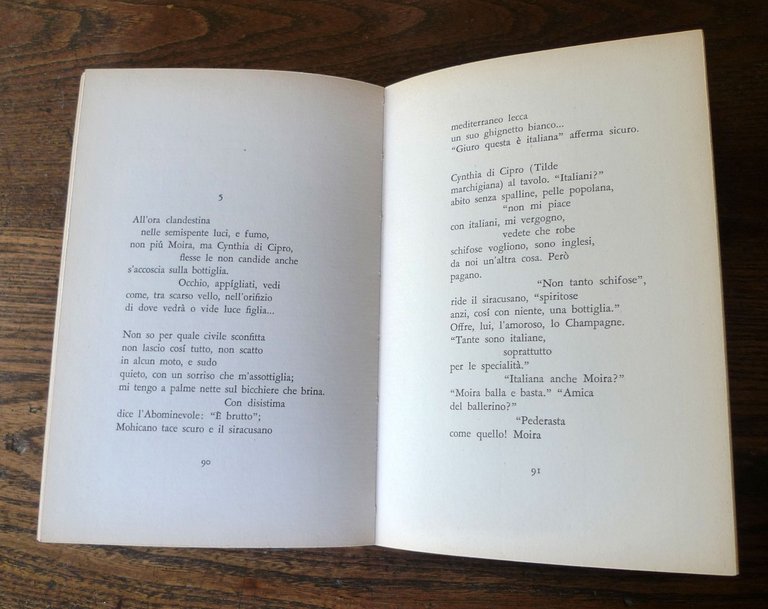 5
All'ora clandestina
nelle semispente luci, e fumo,
non piú Moira, ma Cynthia di Cipro,
flesse le non candide anche
s'accoscia sulla bottiglia.
Occhio, appígliati, vedi
come, tra scarso vello, nell'orifizio
di dove vedrà o vide luce figlia...
Non so per quale civile sconfitta
non lascio cosí tutto, non scatto
in alcun moto, e sudo
quieto, con un sorriso che m'assottiglia;
mi tengo a palme nette sul bicchiere che brina.
Con disistima
dice l'Abominevole: “È brutto”;
Mohicano tace scuro e il siracusano
90
mediterraneo lecca
un suo ghignetto bianco...
“Giuro questa è italiana” afferma sicuro.
Cynthia di Cipro (Tilde
marchigiana) al tavolo. “Italiani?”
abito senza spalline, pelle popolana,
“non mi piace
con italiani, mi vergogno,
vedete che robe
schifose vogliono, sono inglesi,
da noi un'altra cosa. Però
pagano.
“Non tanto schifose”,
ride il siracusano, “spiritose
anzi, cosí con niente, una bottiglia.”
Offre, lui, l'amoroso, lo Champagne.
“Tante sono italiane,
soprattutto
per le specialità.”
“Italiana anche Moira?”
“Moira balla e basta.” “Amica
del ballerino?”
“Pederasta
come quello! Moira
91